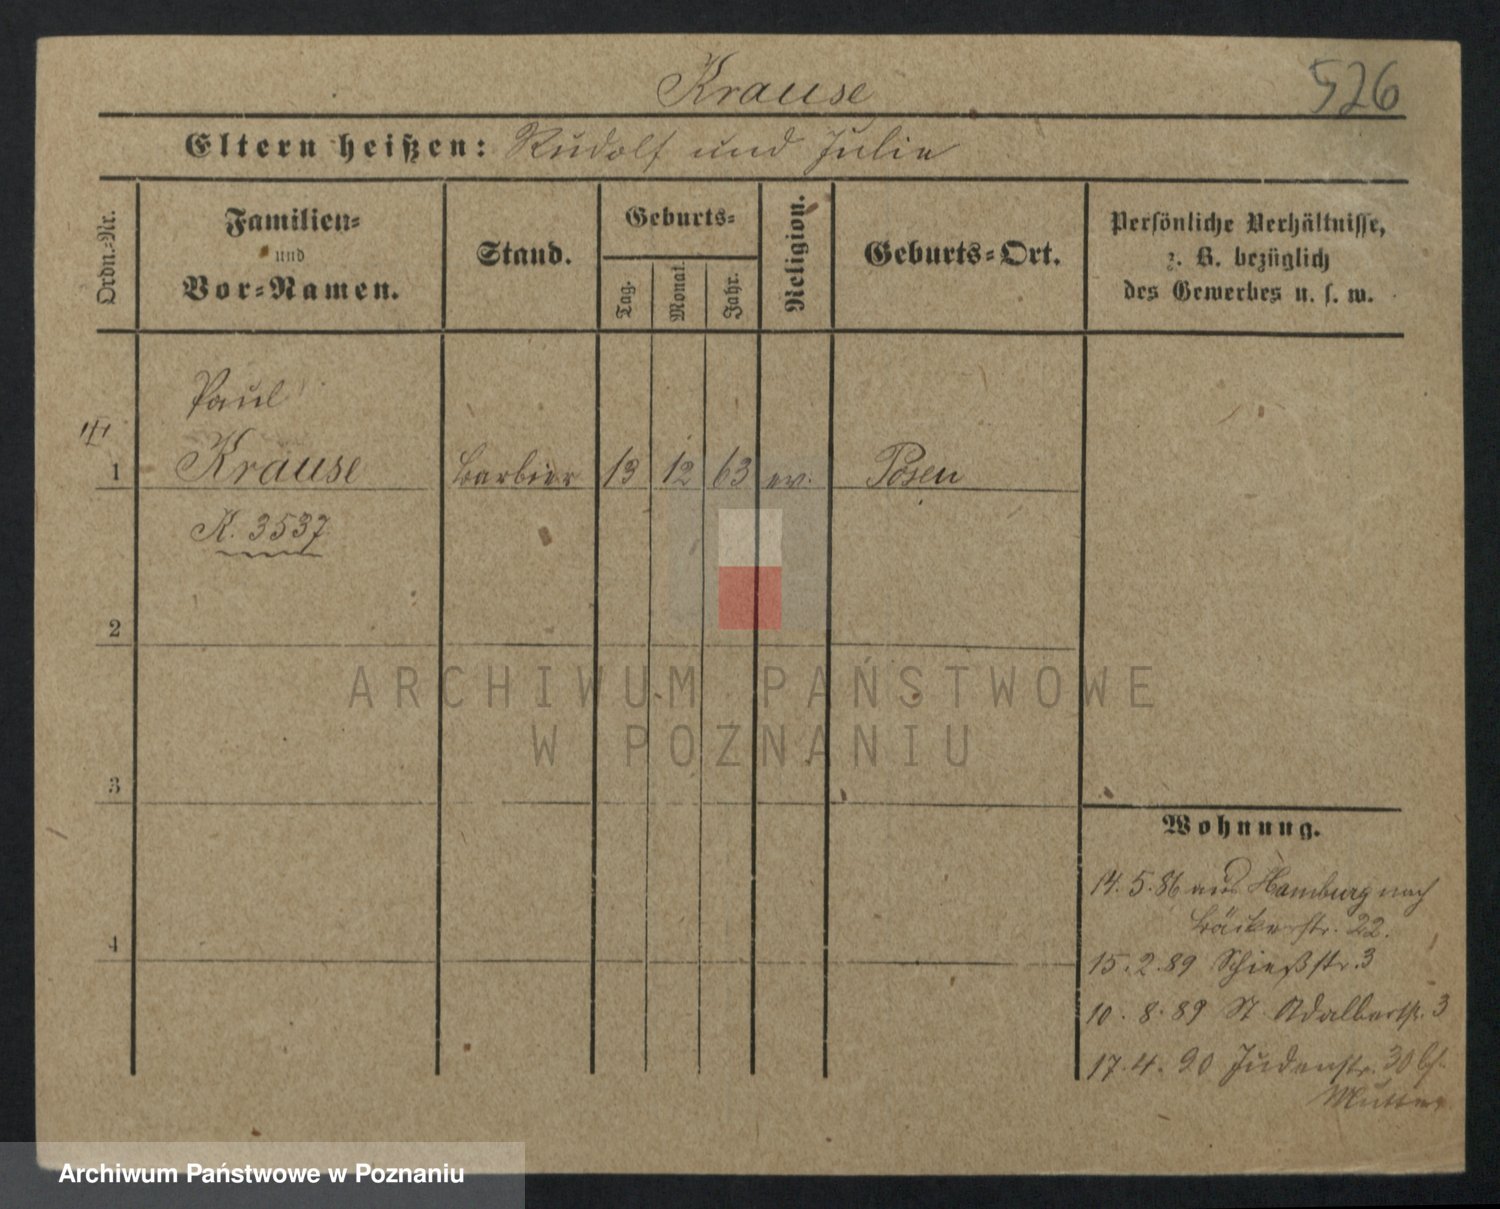 Krause
526
Eltern heißen: Rudolf und Julie
Ordn.-Nr.
Familien-
und
Vor-Namen.
Stand.
Geburts-
Tag.
Monat.
Jahr.
Religion.
Geburts-Ort.
Persönliche Verhältnisse,
z. B. bezüglich
des Gewerbes u. s. w.
Paul
1 Krause Barbier 13 12 63 ev. Posen
K. 3537
2
3
4
Wohnung.
14. 5. 86 aus Hamburg nach
Bäckerstr. 22.
15. 2. 89 Schießstr. 3
10. 8. 89 St Adalbertstr. 3
17. 4. 90 Judenstr. 30 bf.
Mutter
ARCHIWUM PAŃSTWOWE
W POZNANIU
Archiwum Państwowe w Poznaniu